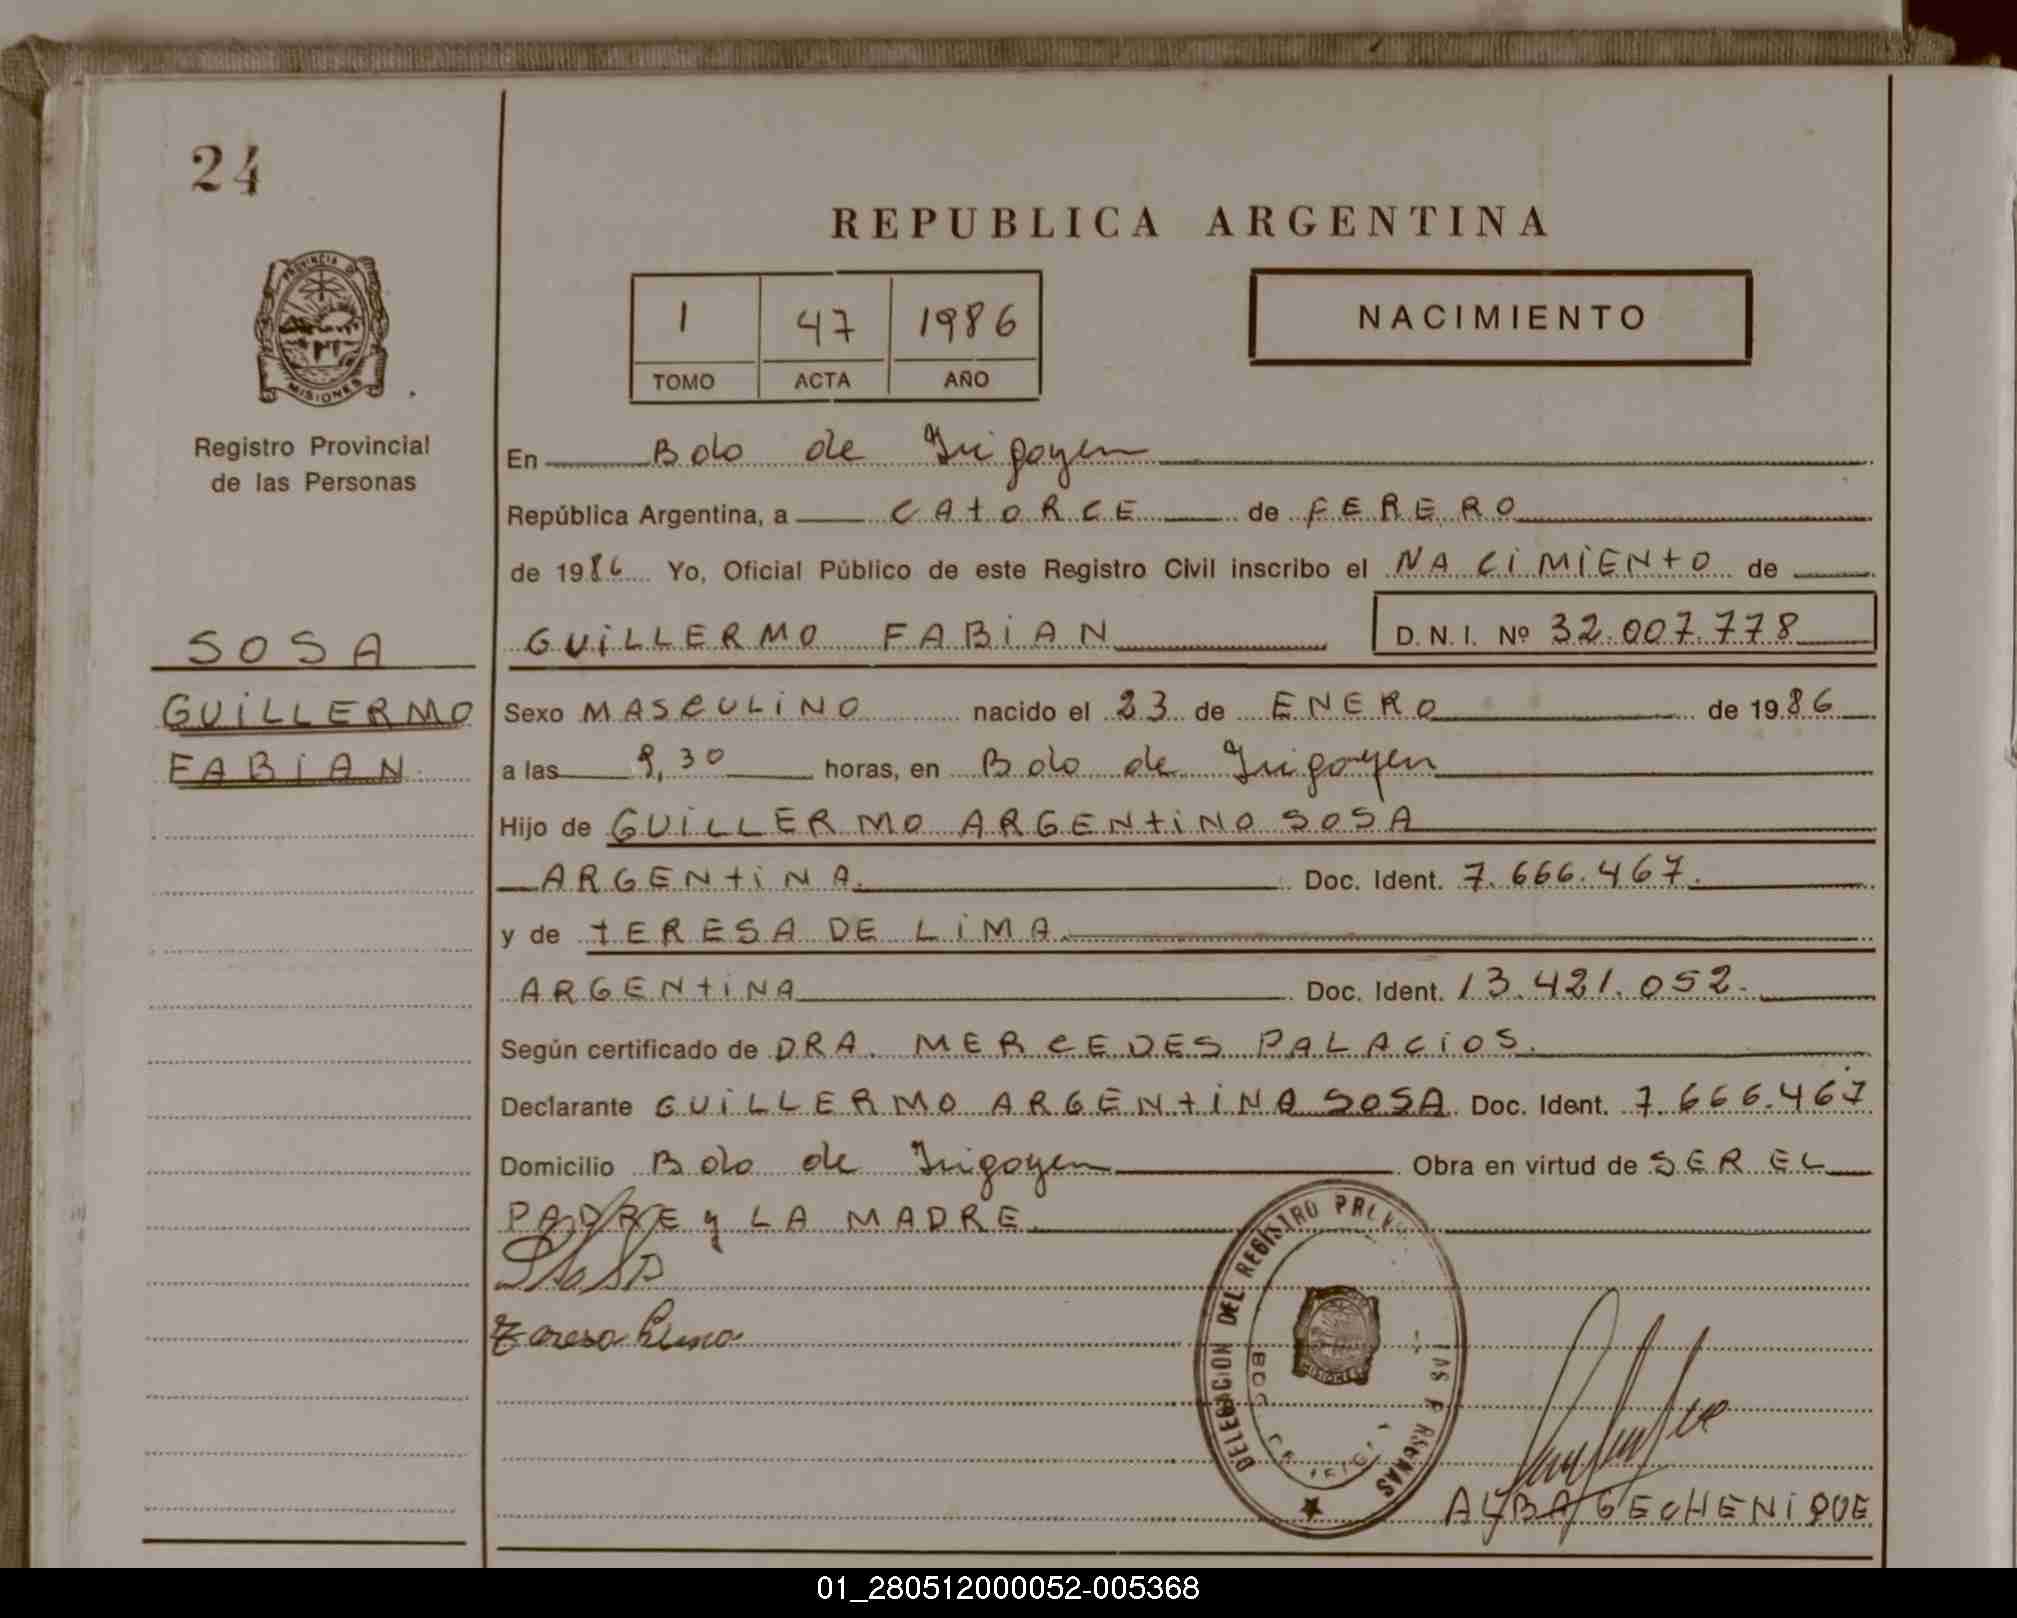 24
REPUBLICA ARGENTINA
PROVINCIA DE
MISIONES
1 47 1986
TOMO ACTA AÑO
NACIMIENTO
Registro Provincial
de las Personas
En Bdo de Irigoyen
República Argentina, a CATORCE de FERERO
de 1986 Yo, Oficial Público de este Registro Civil inscribo el NACIMIENTO de
SOSA
GUILLERMO FABIAN D.N.I. Nº 32.007.778
GUILLERMO
FABIAN
Sexo MASCULINO nacido el 23 de ENERO de 1986
a las 9,30 horas, en Bdo de Irigoyen
Hijo de GUILLERMO ARGENTINO SOSA
ARGENTINA. Doc. Ident. 7.666.467.
y de TERESA DE LIMA.
ARGENTINA Doc. Ident. 13.421.052.
Según certificado de DRA. MERCEDES PALACIOS.
Declarante GUILLERMO ARGENTINO SOSA Doc. Ident. 7.666.467
Domicilio Bdo de Irigoyen Obra en virtud de SER EL
PADRE y LA MADRE.
Sosa
Teresa Lima
DELEGACION DEL REGISTRO
MISIONES
01_280512000052-005368